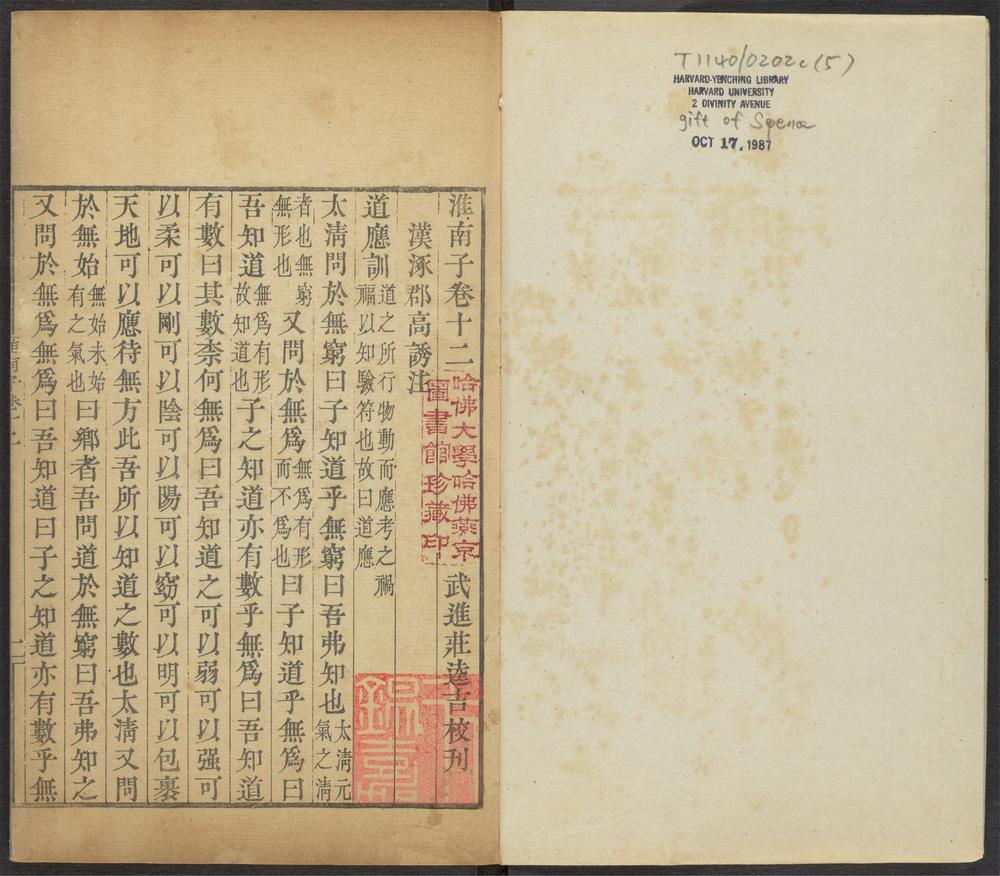 T1140/0202c(5)
HARVARD-YENCHING LIBRARY
HARVARD UNIVERSITY
2 DIVINITY AVENUE
gift of
OCT 17, 1987
淮南子卷十二 武進莊逵吉校刊
哈佛大學哈佛燕京
圖書館珍藏印
漢涿郡高誘注
道應訓道之所行物動而應考之禍福以知驗符也故曰道應
太清問於無窮曰子知道乎無窮曰吾弗知也太清元氣之清
者也無窮無形也又問於無爲無爲有形而不爲也曰子知道乎無爲曰
吾知道無爲有形故知道也子之知道亦有數乎無爲曰吾知道
有數曰其數柰何無爲曰吾知道之可以弱可以强可
以柔可以剛可以陰可以陽可以窈可以明可以包裹
天地可以應待無方此吾所以知道之數也太清又問
於無始無始未始有之氣也曰鄉者吾問道於無窮曰吾弗知之
又問於無爲無爲曰吾知道曰子之知道亦有數乎無